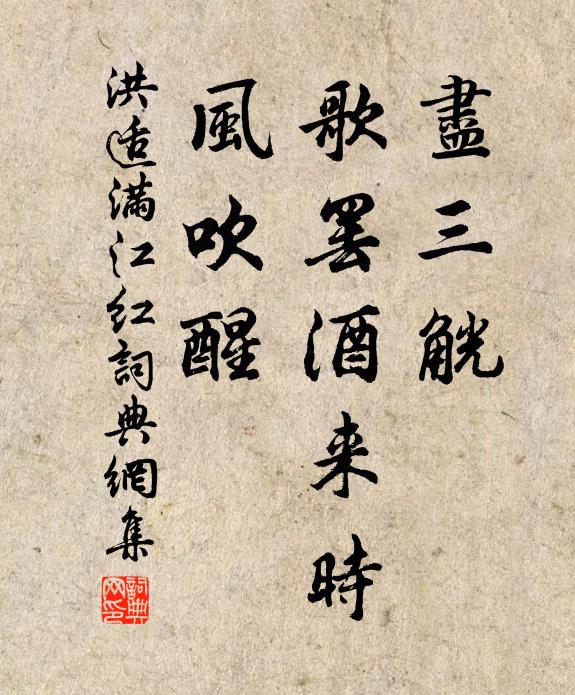 盡三觥
歌罢酒来時
風吹醒
洪适滿江红詞典網集
詞典网印